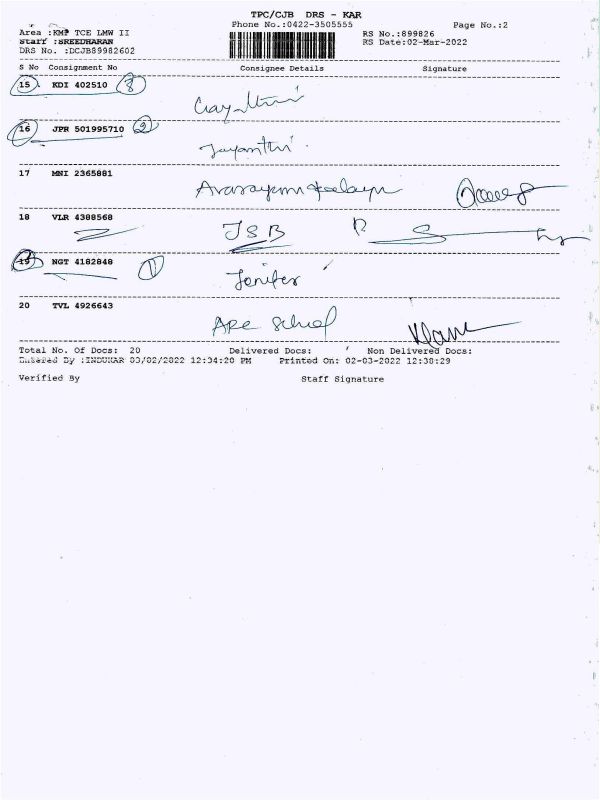 TPC/CJB DRS - KAR
Phone No.:0422-3505555 Page No.:2
Area :KMP TCE LMW II RS No.:899826
Staff :SREEDHARAN RS Date:02-Mar-2022
DRS No. :DCJB89982602
S No Consignment No Consignee Details Signature
15 KDI 402510 8
16 JPR 501995710 2
Jayanthi
17 MNI 2365881
18 VLR 4388568
JSB
19 NGT 4182848 1
Jenifer
20 TVL 4926643
APC School
Total No. Of Docs: 20 Delivered Docs: Non Delivered Docs:
Entered By :INDUKAR 03/02/2022 12:34:20 PM Printed On: 02-03-2022 12:38:29
Verified By Staff Signature